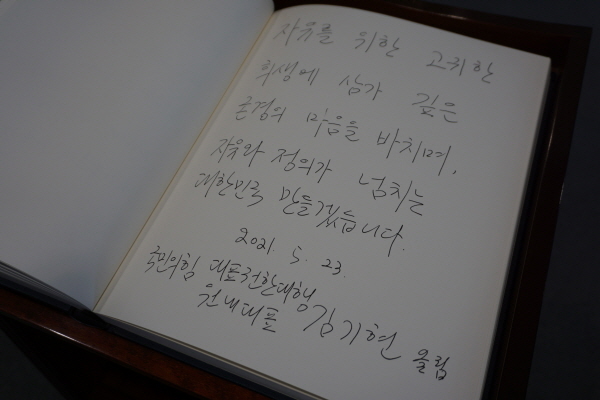 자유를 위한 고귀한
희생에 삼가 깊은
존경의 마음을 바치며,
자유와 정의가 넘치는
대한민국 만들겠습니다.
2021. 5. 23.
국민의힘 대표권한대행
원내대표 김기현 올림